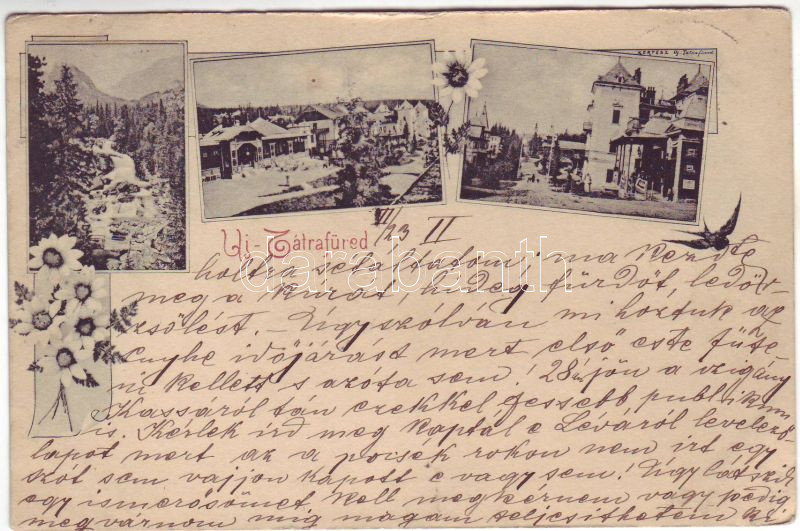 KERTÉSZ Uj-Tátrafüred
Uj-Tátrafüred
VI/23 II
darabanth
holtra sétáltatom, ma kezdte
meg a kúrát, hideg fürdőt, ledör-
zsölést. – Úgyszólván mi hoztuk az
enyhe időjárást mert első este fűte
ni kellett s azóta sem! 28án jön a czigány
Kassáról tán ezekkel jessebb publikum
is. Kérlek ird meg kaptál e Léváról levelező
lapot mert az a pocsek rokon nem irt egy
szót sem vajjon kapott e vagy sem! Úgy látszik
egy ismerősömet kell megkérnem vagy pedig
megvárnom mig magam teljesithetem